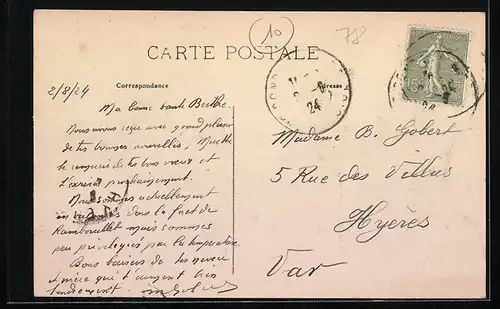 10
78
CARTE POSTALE
Correspondance
Adresse
2/8/24
Ma bonne tante Berthe
Nous avons reçu avec grand plaisir
de tes bonnes nouvelles. Marthe
te remercie de tes bons vœux et
t'écrira prochainement.
Nous sommes actuellement
en vacances dans la forêt de
Rambouillet mais sommes
peu privilégiés par la température.
Bons baisers de tes neveu
et nièce qui t'aiment bien
tendrement
Madame B. Gobert
5 Rue des Villas
Hyères
Var
24
15c